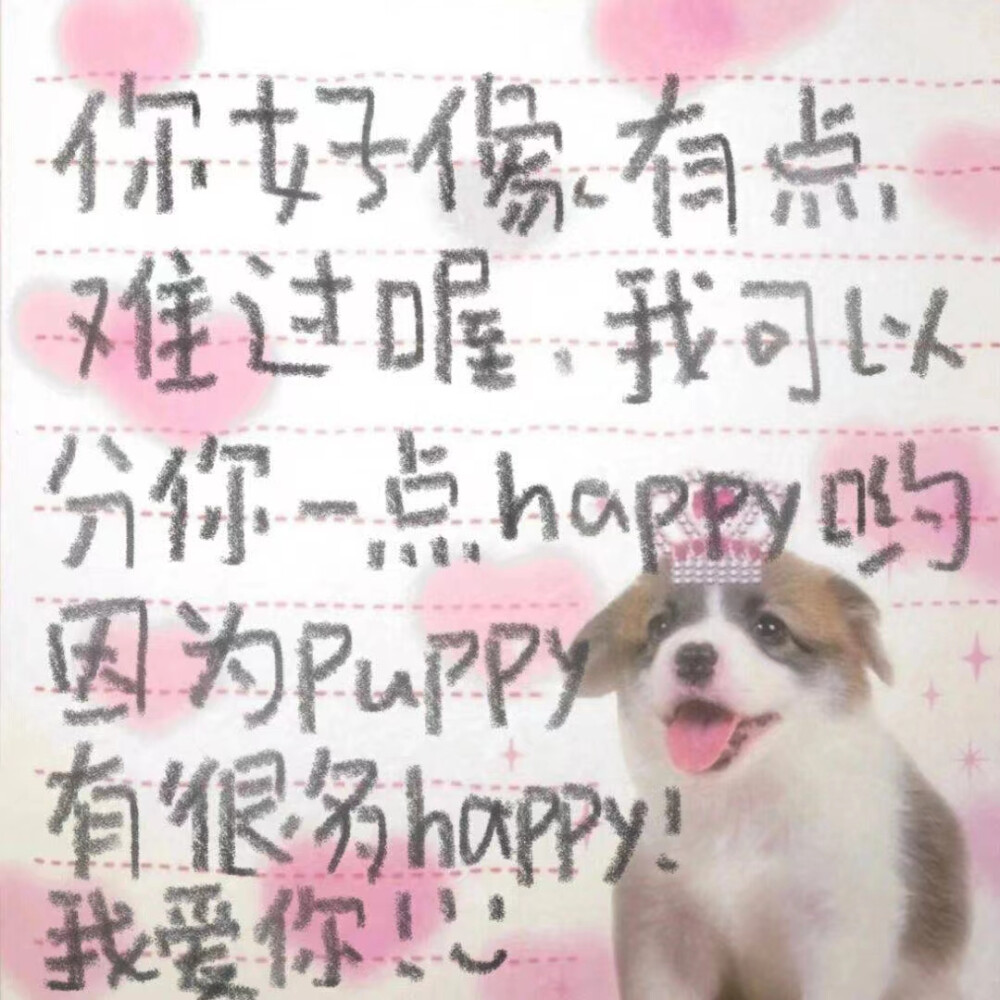 你好像有点
难过喔.我可以
分你一点happy哟
因为puppy
有很多happy!
我爱你!